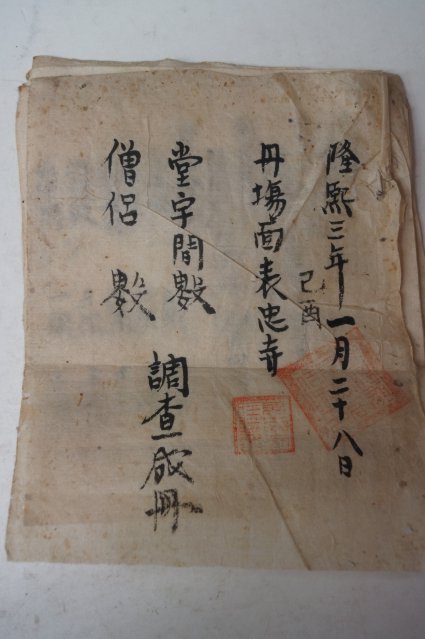 隆熙三年一月二十八日
己酉
丹場面表忠寺
堂宇間數
僧侶 數
調查成冊